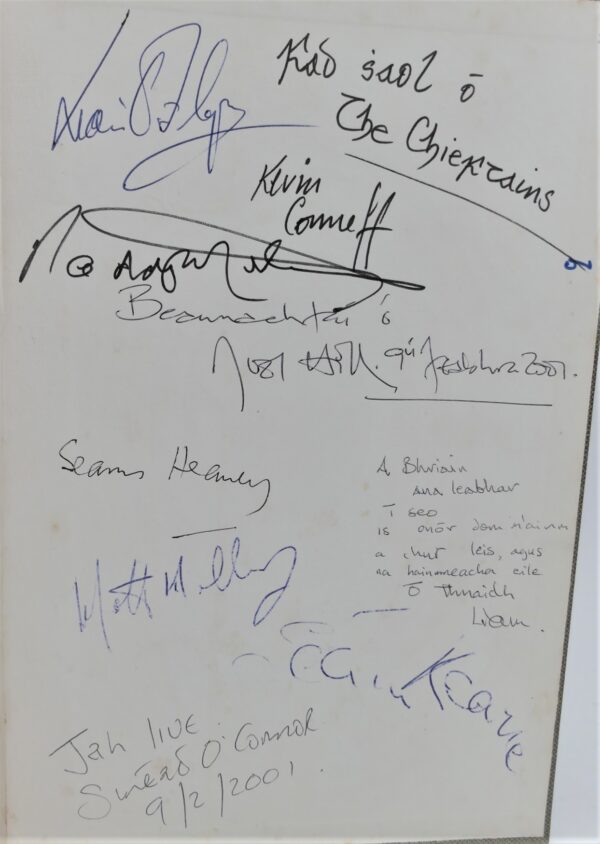 Fad ṡaol ó
The Chieftains
Kevin
Conneff
Beannachtaí ó
Noel Hill. 9ú Feabhra 2001.
Seamus Heaney
A Bhriain
ana leabhar
í seo
is onór dom m'ainm
a chur leis, agus
na hainmneacha eile
Ó
Liam.
Matt Molloy
Seán Keane
Jah live
Sinéad O'Connor
9/2/2001.